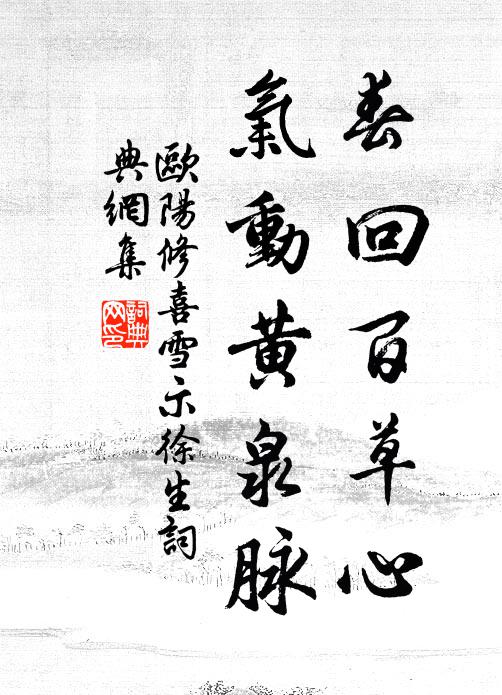 春回百草心
氣動黃泉脉
歐陽修喜雪示徐生詞
典網集
詞典
网印